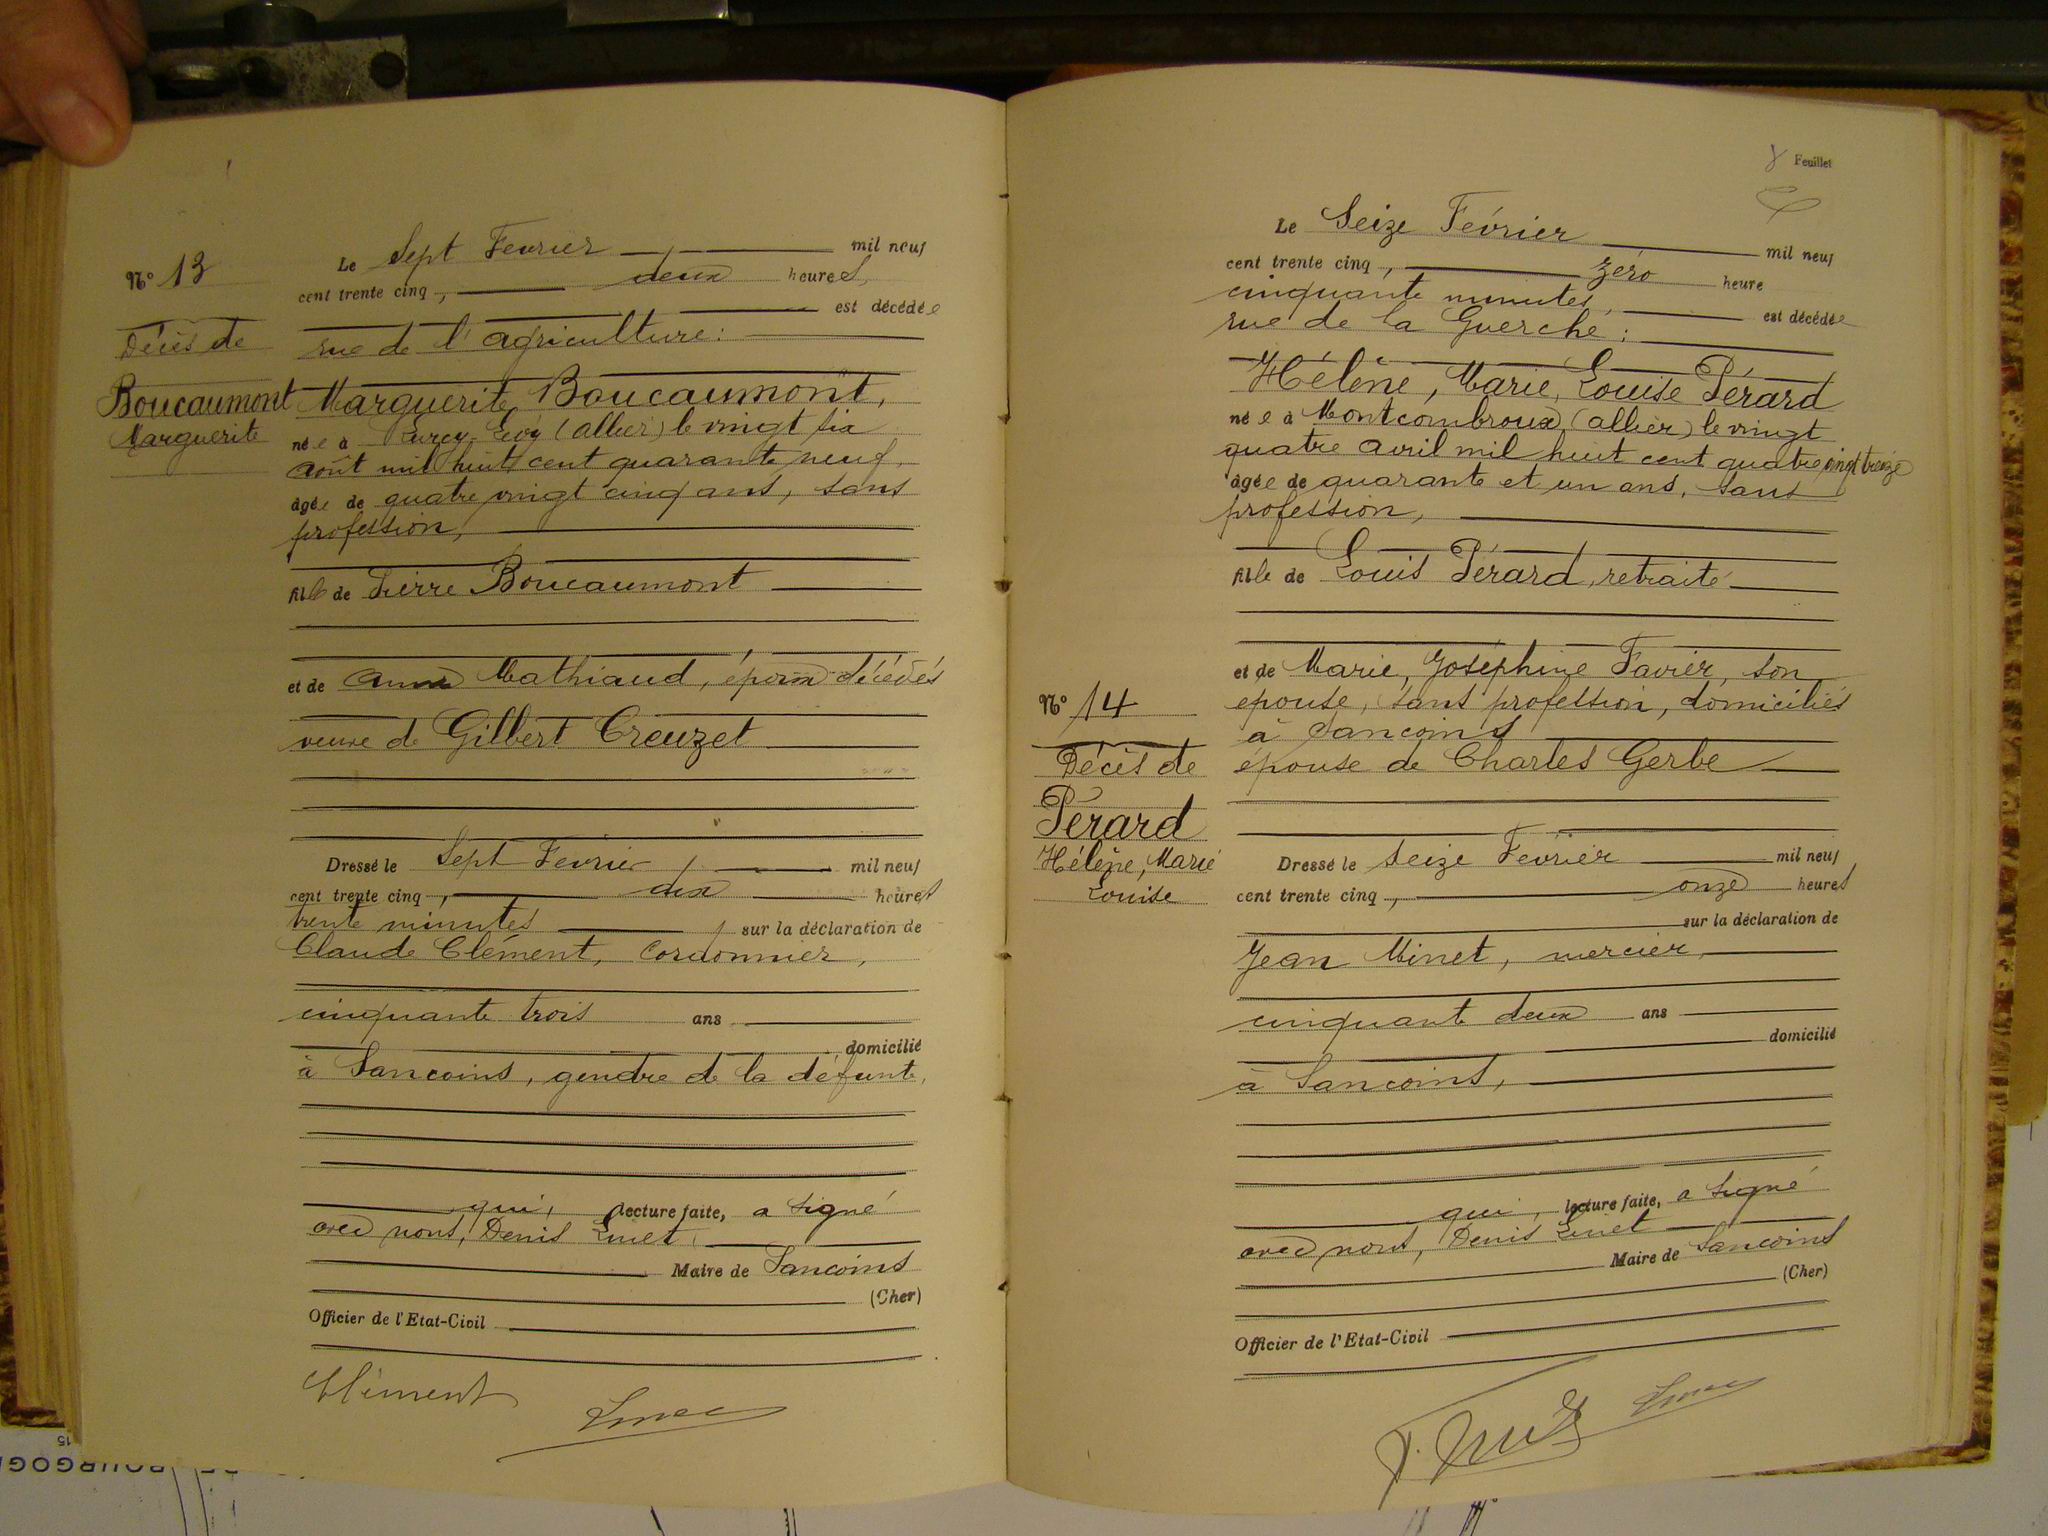 N° 13
Décès de
Boucaumont
Marguerite
Le Sept Fevrier mil neuf
cent trente cinq, deux heures
est décédée
rue de l'agriculture:
Marguerite Boucaumont,
née à Lurcy-Levy (allier) le vingt six
août mil huit cent quarante neuf,
âgée de quatre vingt cinq ans, sans
profession,
fille de Pierre Boucaumont
et de Mathiaud, époux décédés
veuve de Gilbert Creuzet
Dressé le Sept Fevrier, mil neuf
cent trente cinq, dix heures
trente minutes, sur la déclaration de
Claude Clément, cordonnier,
cinquante trois ans
domicilié
à Sancoins, gendre de la défunte,
qui, lecture faite, a signé
avec nous, Denis
Maire de Sancoins
(Cher)
Officier de l'Etat-Civil
Clément
8 Feuillet
Le Seize Février mil neuf
cent trente cinq, zéro heure
cinquante minutes, est décédée
rue de la Guerche:
Hélène, Marie, Louise Pérard
née à Montcombroux, (allier) le vingt
quatre avril mil huit cent quatre vingt treize
âgée de quarante et un ans, sans
profession,
fille de Louis Pérard, retraité
et de Marie, Joséphine Favier, son
épouse, sans profession, domiciliés
à Sancoins
épouse de Charles Gerbe
N° 14
Décès de
Pérard
Hélène, Marie
Louise
Dressé le seize Février mil neuf
cent trente cinq, onze heures
sur la déclaration de
Jean Minet, mercier,
cinquant deux ans
domicilié
à Sancoins,
qui, lecture faite, a signé
avec nous, Denis
Maire de Sancoins
(Cher)
Officier de l'Etat-Civil